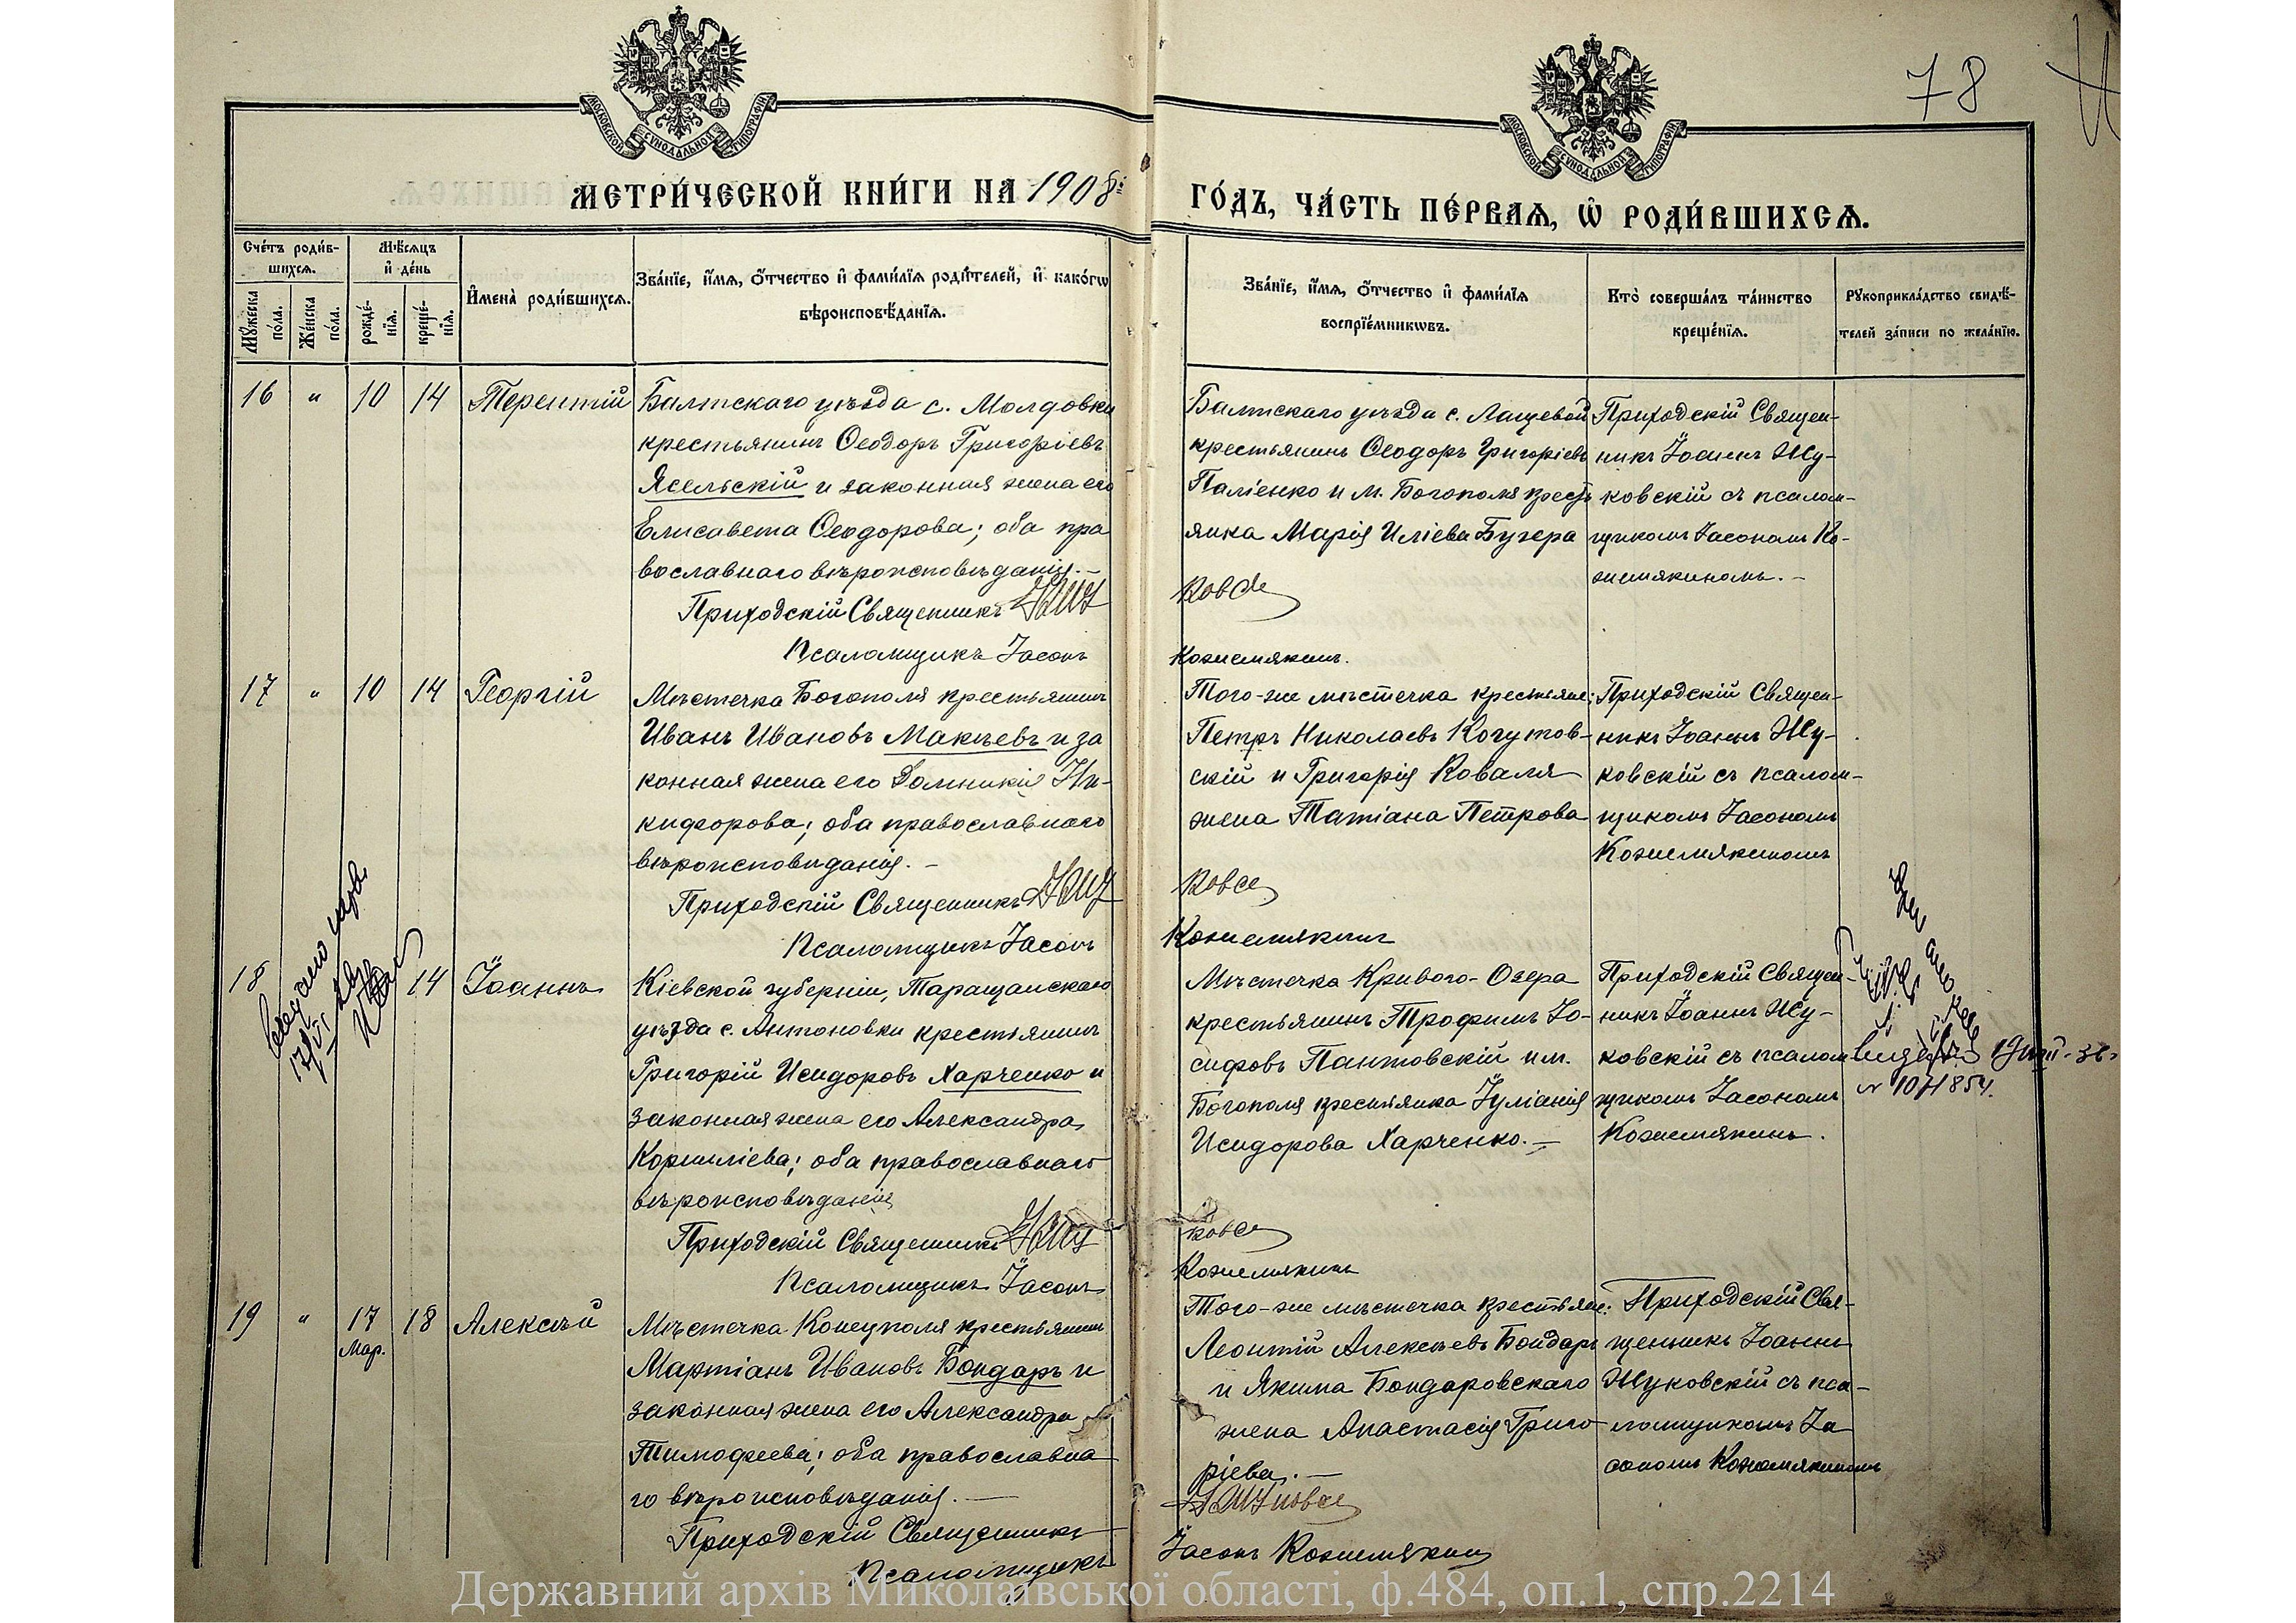 МОСКОВСКОЙ СѴНОДАЛЬНОЙ ТИПОГРАФІИ
МОСКОВСКОЙ СѴНОДАЛЬНОЙ ТИПОГРАФІИ
78
МЕТРИ́ЧЕСКОЙ КНИ́ГИ НА 1908й
ГО́ДЪ, ЧА́СТЬ ПЕ́РВАѦ, Ѡ҆ РОДИ́ВШИХСѦ.
Сче́тъ роди́в-
шихсѧ.
Мꙋ́жеска по́ла.
Же́нска по́ла.
Мѣ́сѧцъ
и҆ де́нь
рожде́-
нїѧ.
креще́-
нїѧ.
И҆мена̀ роди́вшихсѧ.
Зва́нїе, и҆́мѧ, ѻ҆́тчество и҆ фами́лїѧ роди́телей, и҆ како́гѡ
вѣроисповѣ́данїѧ.
Зва́нїе, и҆́мѧ, ѻ҆́тчество и҆ фами́лїѧ
воспрїе́мникѡвъ.
Кто̀ соверша́лъ та́инство
креще́нїѧ.
Рꙋкоприкла́дство свидѣ́-
телей за́писи по жела́нїю.
16 " 10 14 Терентій
Балтскаго уѣзда с. Молдовки
крестьянинъ Ѳеодоръ Григоріевъ
Ясельскій и законная жена его
Елисавета Ѳеодорова; оба пра
вославнаго вѣроисповѣданія.-
Приходскій Священникъ ІЖу
Псаломщикъ Іасонъ
Балтскаго уѣзда с. Лащевой
крестьянинъ Ѳеодоръ Григоріевъ
Паліенко и м. Богополя крест
янка Марія Иліева Бугера
ковск
Кожемякинъ.
Приходскій Священ-
никъ Іоаннъ Жу-
ковскій съ псалом-
щикомъ Іасономъ Ко-
жемякиномъ.-
17 " 10 14 Георгій
Мѣстечка Богополя крестьянинъ
Иванъ Ивановъ Макѣевъ и за
конная жена его Домникія Ни-
кифорова; оба православнаго
вѣроисповѣданія.-
Приходскій Священникъ ІЖу
Псаломщикъ Іасонъ
Того-же мѣстечка крестьяне:
Петръ Николаевъ Когутов-
скій и Григорія Коваля
жена Татіана Петрова
ковск
Кожемякинъ
Приходскій Священ-
никъ Іоаннъ Жу-
ковскій съ псалом-
щикомъ Іасономъ
Кожемякиномъ
18 14 Іоаннъ
Кіевской губерніи, Таращанскаго
уѣзда с. Антоновки крестьянинъ
Григорій Исидоровъ Харченко и
законная жена его Александра
Корниліева; оба православнаго
вѣроисповѣданія
Приходскій Священникъ ІЖу
Псаломщикъ Іасонъ
Мѣстечка Кривого-Озера
крестьянинъ Трофимъ Іо-
сифовъ Пантовскій и м.
Богополя крестьянка Іуліанія
Исидорова Харченко.-
ковск
Кожемякинъ
Приходскій Священ-
никъ Іоаннъ Жу-
ковскій съ псалом
щикомъ Іасономъ
Кожемякинъ.
№ 1071854.
19 " 17 18 Алексѣй
Мар.
Мѣстечка Конецполя крестьянинъ
Мартіанъ Ивановъ Бондарь и
законная жена его Александра
Тимофеева; оба православна
го вѣроисповѣданія.-
Приходскій Священникъ
Псаломщикъ
Того-же мѣстечка крестьяне:
Леонтій Алексѣевъ Бондарь
и Якима Бондаровскаго
жена Анастасія Григо
ріева.-
ІЖуковск
Іасонъ Кожемякинъ
Приходскій Свя-
щенникъ Іоаннъ
Жуковскій съ пса-
ломщикомъ Іа
сономъ Кожемякиномъ
Державний архів Миколаївської області, ф.484, оп.1, спр.2214